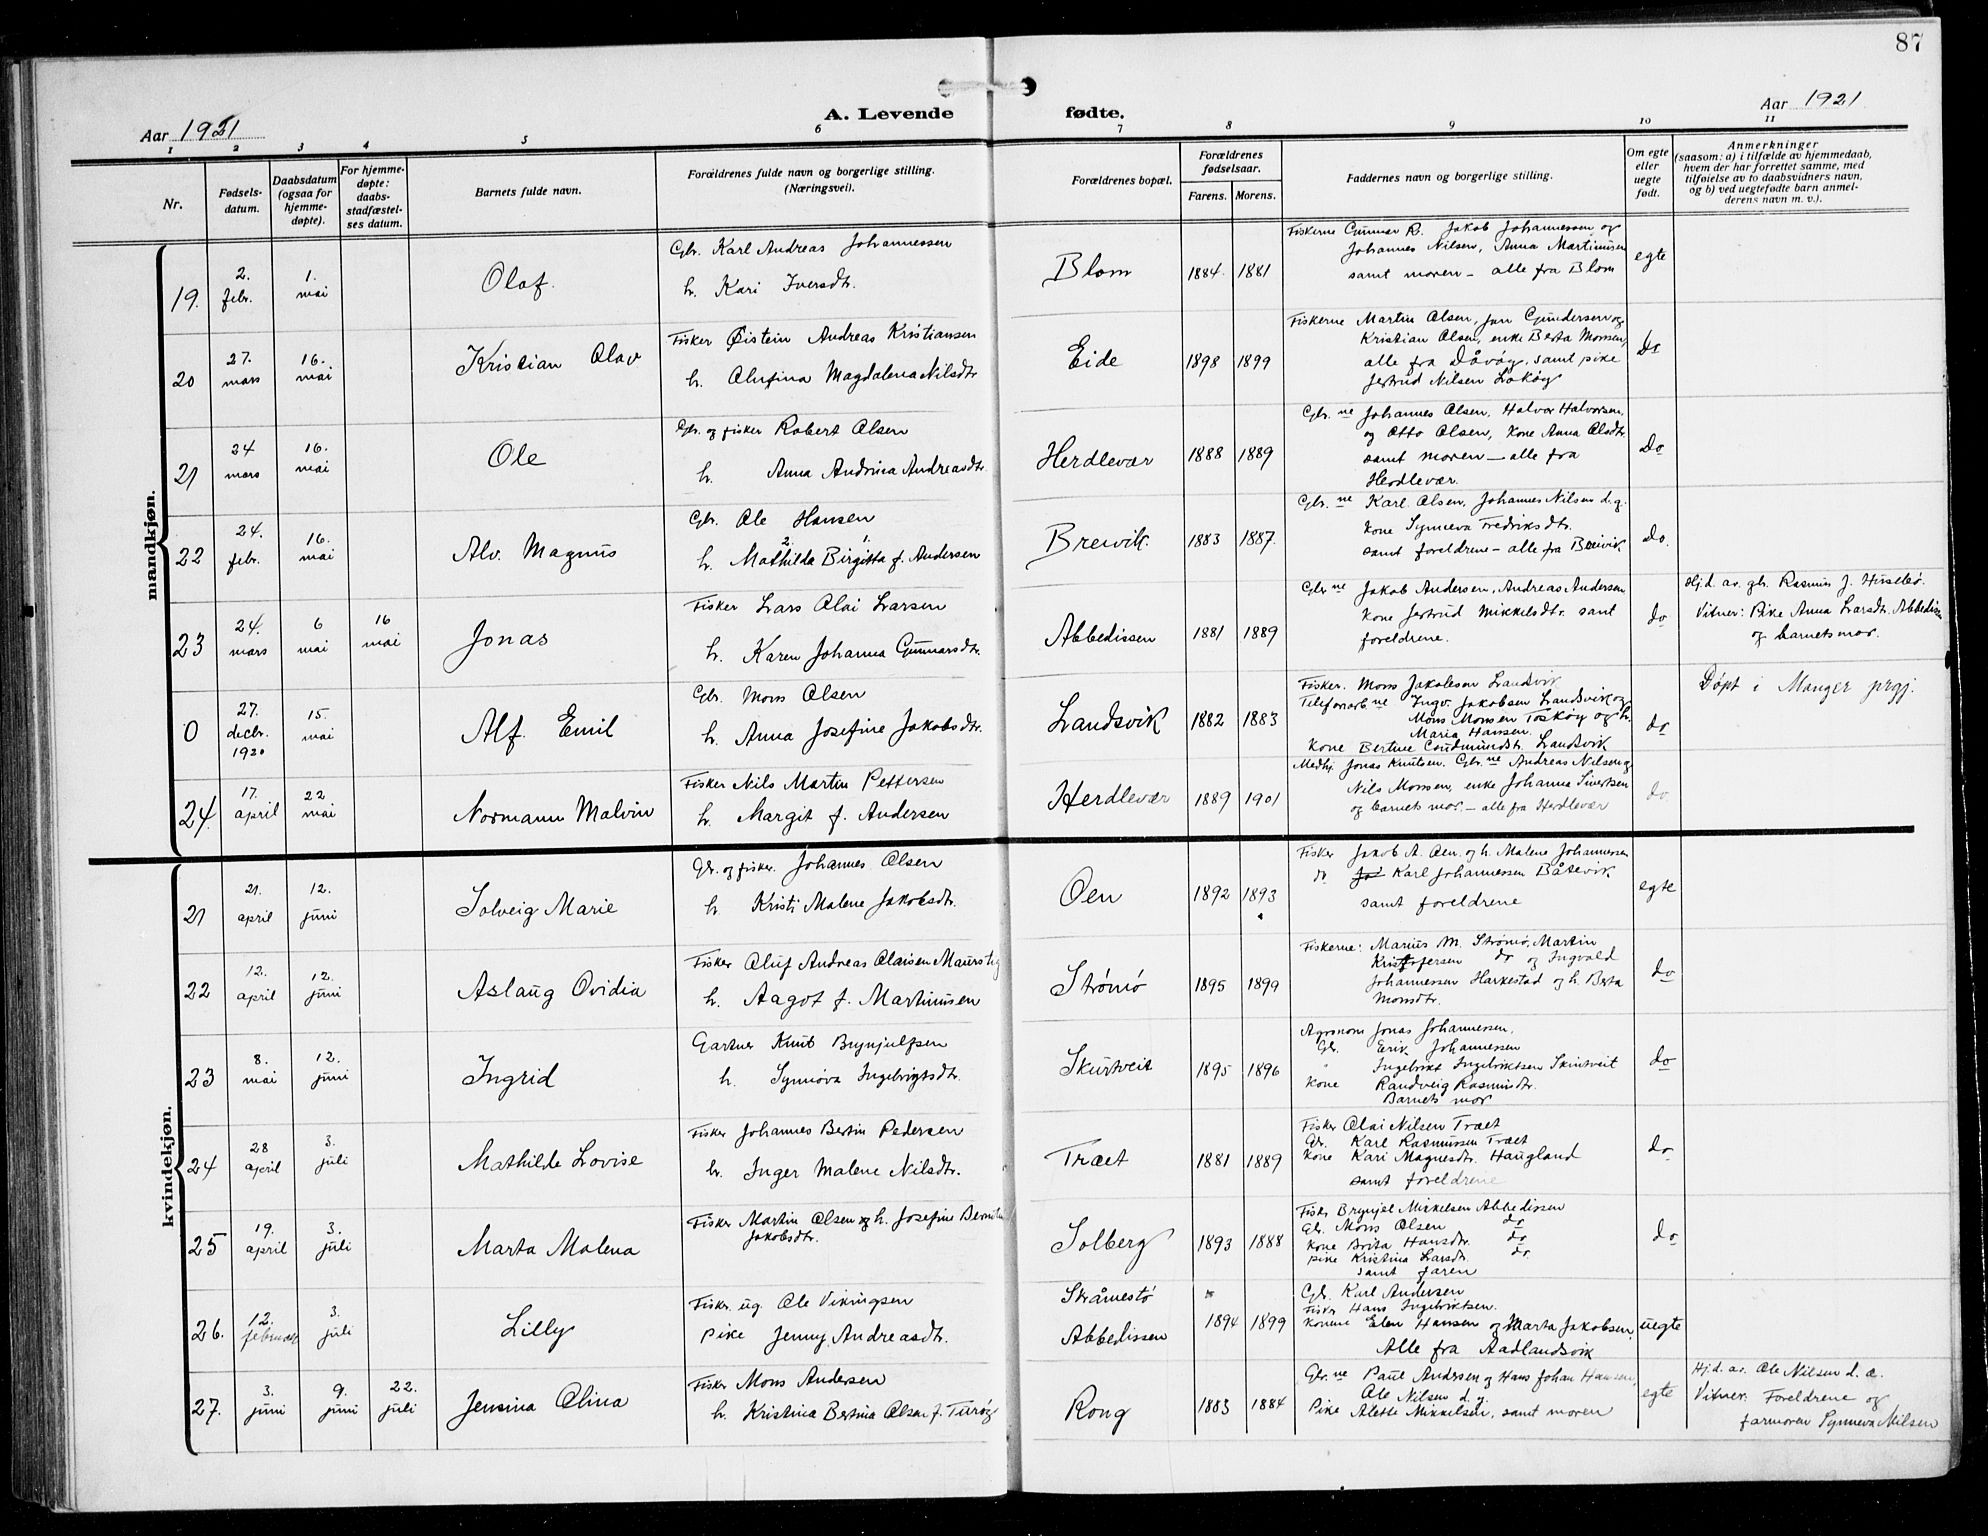 87
Aar 1921
A. Levende fødte.
Aar 1921
1 2 3 4 5 6 7 8 9 10 11
Nr.
Fødsels-
datum.
Daabsdatum
(ogsaa for
hjemme-
døpte).
For hjemme-
døpte:
daabs-
stadfæstel-
ses datum.
Barnets fulde navn.
Forældrenes fulde navn og borgerlige stilling.
(Næringsvei).
Forældrenes bopæl.
Forældrenes
fødselsaar.
Farens. Morens.
Faddernes navn og borgerlige stilling.
Om egte
eller
uegte
født.
Anmerkninger
(saasom: a) i tilfælde av hjemmedaab,
hvem der har forrettet samme, med
tilføielse av to daabsvidners navn,
og b) ved uegtefødte barn anmel-
derens navn m. v.).
mandkjøn.
19. 2. febr. 1. mai Olaf.
Gbr. Karl Andreas Johannessen
h. Kari Iversdtr.
Blom 1884. 1881
Fiskerne Gunnar R. Jakob Johannessen og
Johannes Nilsen, Anna Martinusen
samt moren – alle fra Blom
egte
20 27. mars 16. mai Kristian Olav
Fisker Øistein Andreas Kristiansen
h. Olufina Magdalena Nilsdtr.
Eide 1898 1899
Fiskerne Martin Olsen, Jan Gundersen og
Kristian Olsen, enke Berta Monsen,
alle fra Dåvøy, samt pike
Jertrud Nilsen Lokøy
Do
21 24 mars 16. mai Ole
Gbr. og fisker Robert Olsen
h. Anna Andrina Andreasdtr.
Herdlevær 1888 1889
Gbr.ne Johannes Olsen, Halvor Halvorsen,
og Otto Olsen, kone Anna Olsdtr.
samt moren – alle fra
Herdlevær.
Do
22 24. febr. 16. mai Alv. Magnus
Gbr. Ole Hansen
2. 1.
h. Mathilda Birgitta f. Andersen
Breivik. 1883 1887.
Gbr.ne Karl Olsen, Johannes Nilsen d.y.
kone Synneva Fredriksdtr.
samt foreldrene – alle fra Breivik
do.
23 24. mars 6 mai 16 mai Jonas
Fisker Lars Olai Larsen
h. Karen Johanna Gunnarsdtr.
Abbedissen 1881 1889
Gbr.ne Jakob Andersen, Andreas Andersen
kone Jertrud Mikkelsdtr. samt
foreldrene.
do
Hj.d. av. gb. Rasmus J. Husebø.
Vitner: Pike Anna Larsdtr. Abbedissen
og barnets mor.
0 27. decbr. 1920 15. mai Alf. Emil
Gbr. Mons Olsen
h. Anna Josefine Jakobsdtr.
Landsvik 1882 1883
Fisker. Mons Jakobsen Landsvik
Telefonarb.ne Ingv. Jakobsen Landsvik og
Mons Monsen Toskøy og h.
Maria Hansen.
kone Bertine Gudmundsdtr. Landsvik
do
Døpt i Manger prgj.
24. 17. april 22 mai Normann Malvin
Fisker Nils Martin Pettersen
h. Margit f. Andersen
Herdlevær 1889 1901
Medhj. Jonas Knutsen. Gbr.ne Andreas Nilsen og
Nils Monsen, enke Johanna Sivertsen
og barnets mor. – alle fra Herdlevær
do.
kvindekjøn.
21 21. april 12. juni Solveig Marie
Gb. og fisker. Johannes Olsen
h. Kristi Malene Jakobsdtr.
Oen 1892 1893
Fisker Jakob A. Oen. og h. Malene Johannessen
do Karl Johannessen Båtevik
samt foreldrene
egte
22 12. april 12. juni Aslaug Ovidia
Fisker Oluf Andreas Olaisen Maurstig
h. Aagot f. Martinusen
Strømø 1895 1899
Fiskerne: Marius M. Strømø, Martin
Kristofersen do og Ingvald
Johannessen Harkestad og h. Berta
Monsdtr.
do
23 8. mai 12. juni Ingrid
Gartner Knut Brynjulfsen
h. Synnøva Ingebrigtsdtr.
Skurtveit 1895 1896
Agronom Jonas Johannessen.
Gb. Erik Johannessen
" Ingebrikt Ingebriktsen Skurtveit
kone Randveig Rasmusdtr.
Barnets mor
do
24 28 april 3. juli Mathilde Lovise
Fisker Johannes Bertin Pedersen
h. Inger Malene Nilsdtr.
Træet 1881 1889
Fisker Olai Nilsen Træet
Gb. Karl Rasmussen Træet
kone Kari Magnesdtr. Haugland
samt foreldrene
do
25 19. april 3. juli Marta Malena
Fisker Martin Olsen og h. Josefine
Jakobsdtr.
Solberg 1893 1888
Fisk. Brynjel Mikkelsen Abbedissen
Gb. Mons Olsen do
kone Brita Hansdtr. do
pike Kristina Larsdtr. do
samt faren
do
26. 12. februar 3. juli Lilly
Fisker. ug. Ole Vikingsen
pike Jenny Andreasdtr.
Skråmestø
Abbedissen 1894 1899
Gb. Karl Andersen
Fisker Hans Ingebriktsen.
konene Elen Hansen og Marta Jakobsen,
Alle fra Aadlandsvik
uegte
27. 3. juni 9. juni 22. juli Jensina Olina
Fisker Mons Andersen
h. Kristina Bertina Olsen f. Turøy
Rong 1883 1884
Gbr.ne Paul Andersen og Hans Johan Hansen,
Ole Nilsen d.y.
Pike Alette Mikkelsen, samt moren
egte
Hj.d. av. Ole Nilsen d. æ.
Vitner: Foreldrene og
farmoren Synneva Nilsen